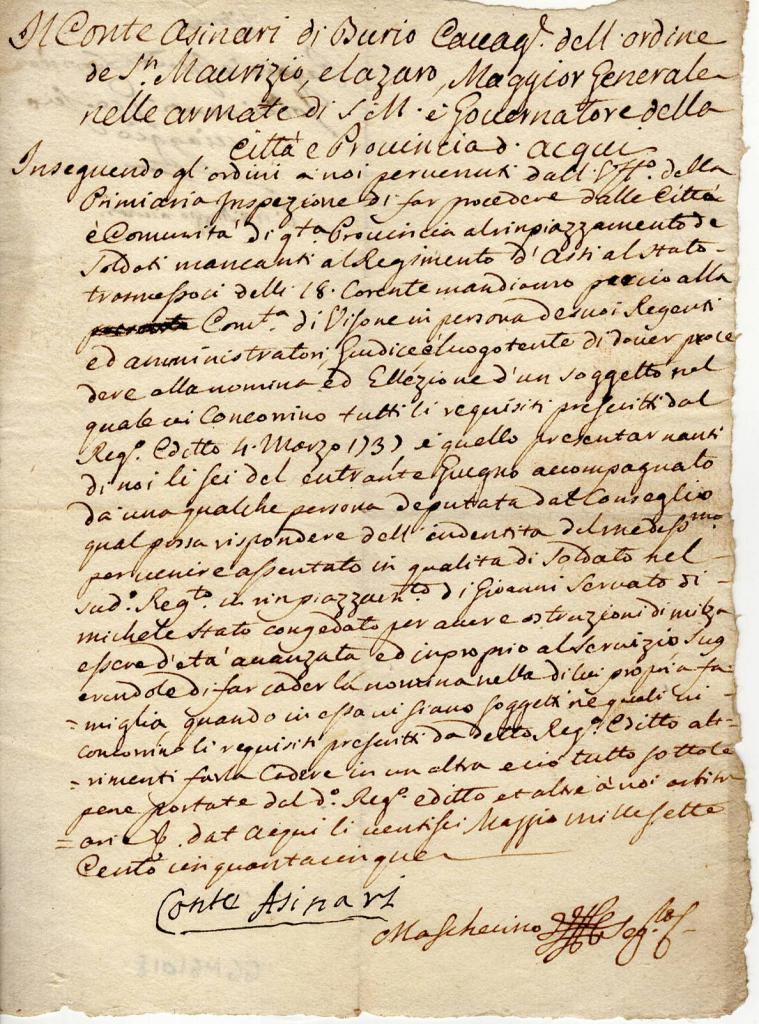 Il Conte Asinari di Burio Cavag.r dell ordine
de S.n Maurizio, e lazaro, Maggior Generale
nelle armate di S. M. e Governatore della
Città e Provincia d. acqui
Inseguendo gl ordini a noi pervenuti dall Uff.o della
Primiaria Inspezione di far procedere dalle Città
è Comunità di q.ta Provincia al rinpiazzamento de
Soldati mancanti al Regimento d'Asti al stato
trasmessoci delli 18. Corente mandiamo perciò alla
Com.ta di Visone in persona de suoi Regenti
ed amministratori, Giudice è luogotente di dover proce
dere alla nomina ed Ellezione d'un soggetto nel
quale vi Concorrino tutti li requisiti prescritti dal
Reg.o Editto 4. Marzo 1737 è quello presentar nanti
di noi li sei del entrante Giugno accompagnato
da una qualche persona deputata dal Conseglio
qual possa rispondere dell'indentita del medess.mo
per venire assentato in qualita di Soldato nel
sud.o Reg.to in rinpiazzam.to di Gioanni Servato di
michele stato congedato per avere ostruzioni di milza
essere d'età avanzata ed inproprio al Servizio sug
erendole di far cader la nomina nella di lui propria fa=
=miglia quando in essa vi siano soggetti ne quali vi
concorrino li requisiti prescritti da detto Reg.o Editto alt=
=rimenti farla Cadere in un altra e ciò tutto sotto le
pene portate dal d.o Reg.o editto et altre à noi arbitr
=arie dat Acqui li ventisei Maggio mille sette
Cento cinquantacinque
Conte Asinari
Maschecino Seg.ro